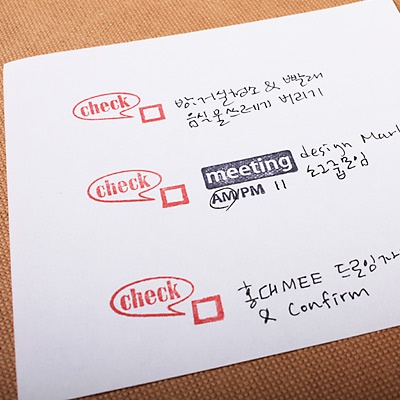 check 방.거실청소 & 빨래
음식물쓰레기 버리기
check meeting design Mar
AM/PM 11 소그룹모임
check 홍대MEE 드로잉자
& Confirm